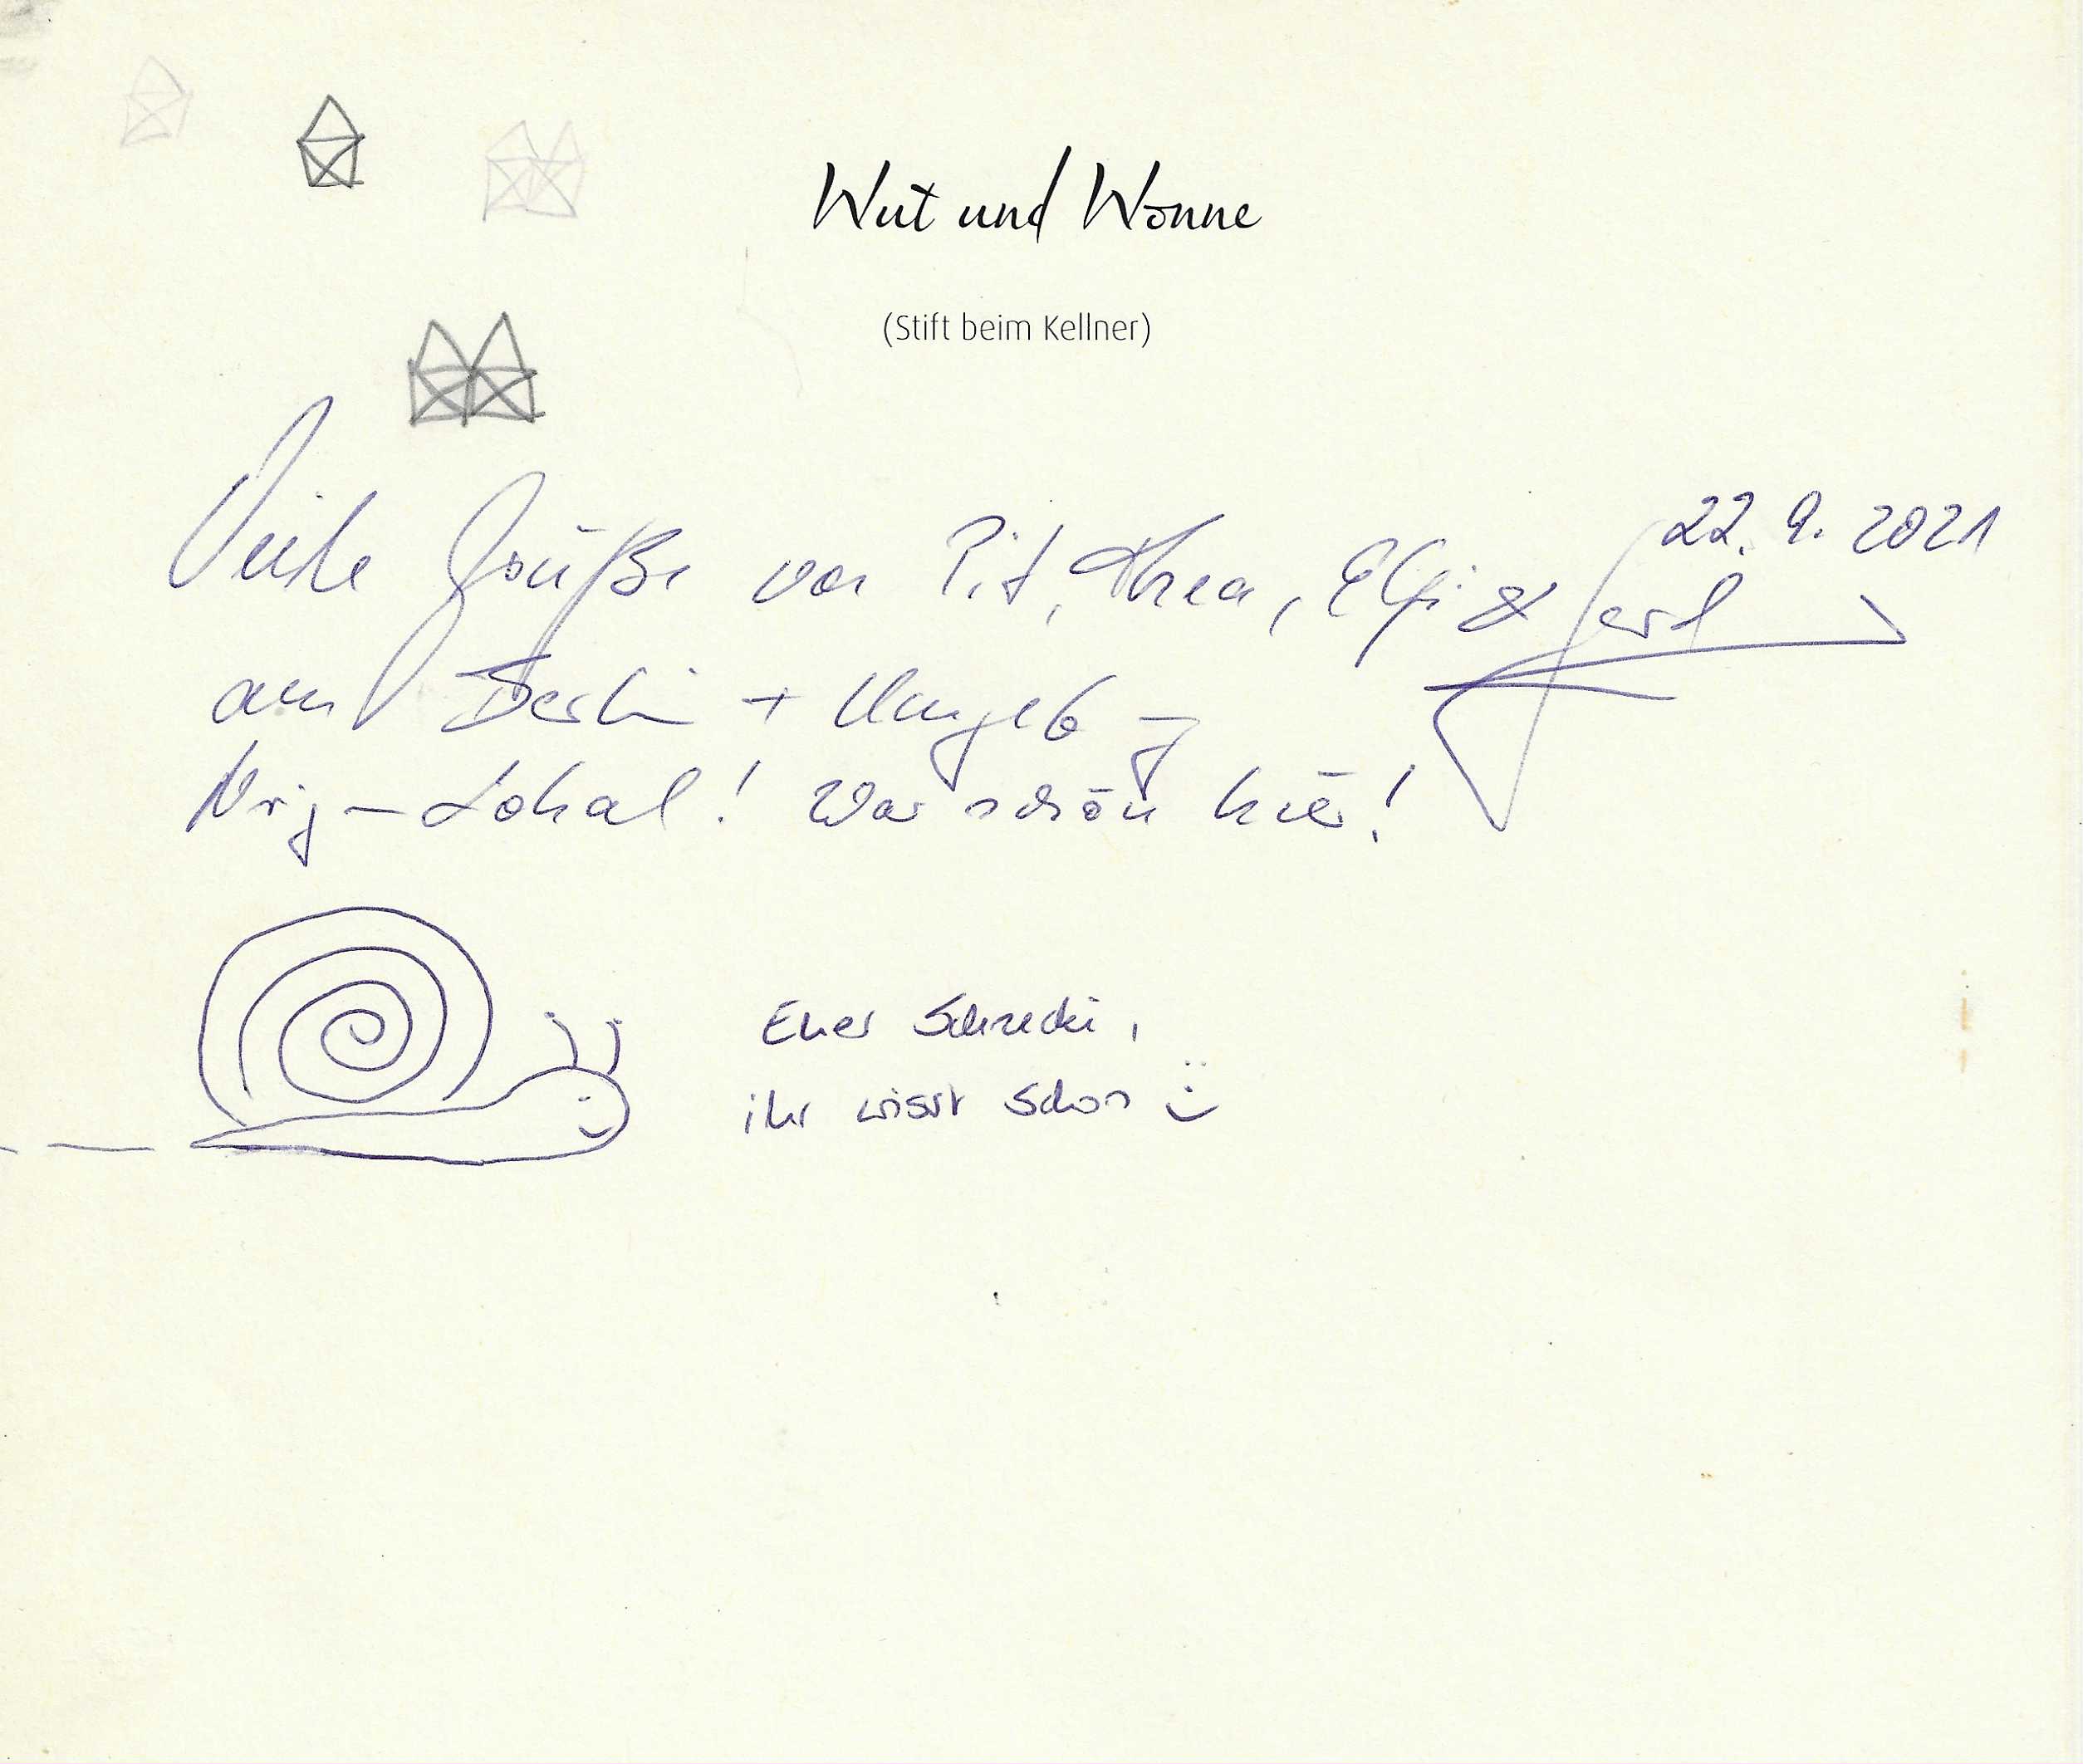 Wut und Wonne
(Stift beim Kellner)
22. 9. 2021
Viele Grüße von Pit, Thea, Elfi &
aus Berlin + Umgebung
Urig-Lokal! War schön hier!
Euer Schnecki,
ihr wisst schon